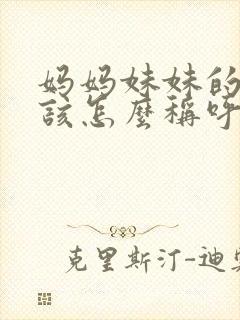 妈妈妹妹的
该怎麼稱呼
克里斯汀-迪